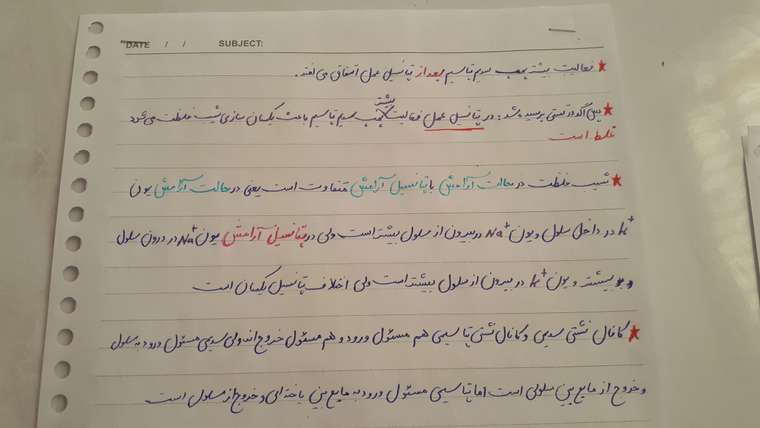 DATE / / SUBJECT:
★ فعالیت بیشتر پمپ سدیم پتاسیم بعد از پتانسیل عمل اتفاق می افتد.
★ پس اگر در تستی پرسیده شد: در پتانسیل عمل فعالیت بیشتر پمپ سدیم پتاسیم باعث یکسان سازی شیب غلظت می شود
غلط است
★ شیب غلظت در حالت آرامش با پتانسیل آرامش متفاوت است یعنی در حالت آرامش یون
K+ در داخل سلول و یون Na+ در بیرون از سلول بیشتر است ولی در پتانسیل آرامش یون Na+ در درون سلول
بیشتر و یون K+ در بیرون از سلول بیشتر است ولی اختلاف پتانسیل یکسان است
★ کانال نشتی سدیمی و کانال نشتی پتاسیمی هم مسئول ورود و هم مسئول خروج اند ولی سدیمی مسئول ورود به سلول
و خروج از مایع بین سلولی است اما پتاسیمی مسئول ورود به مایع بین یاخته ای و خروج از سلول است